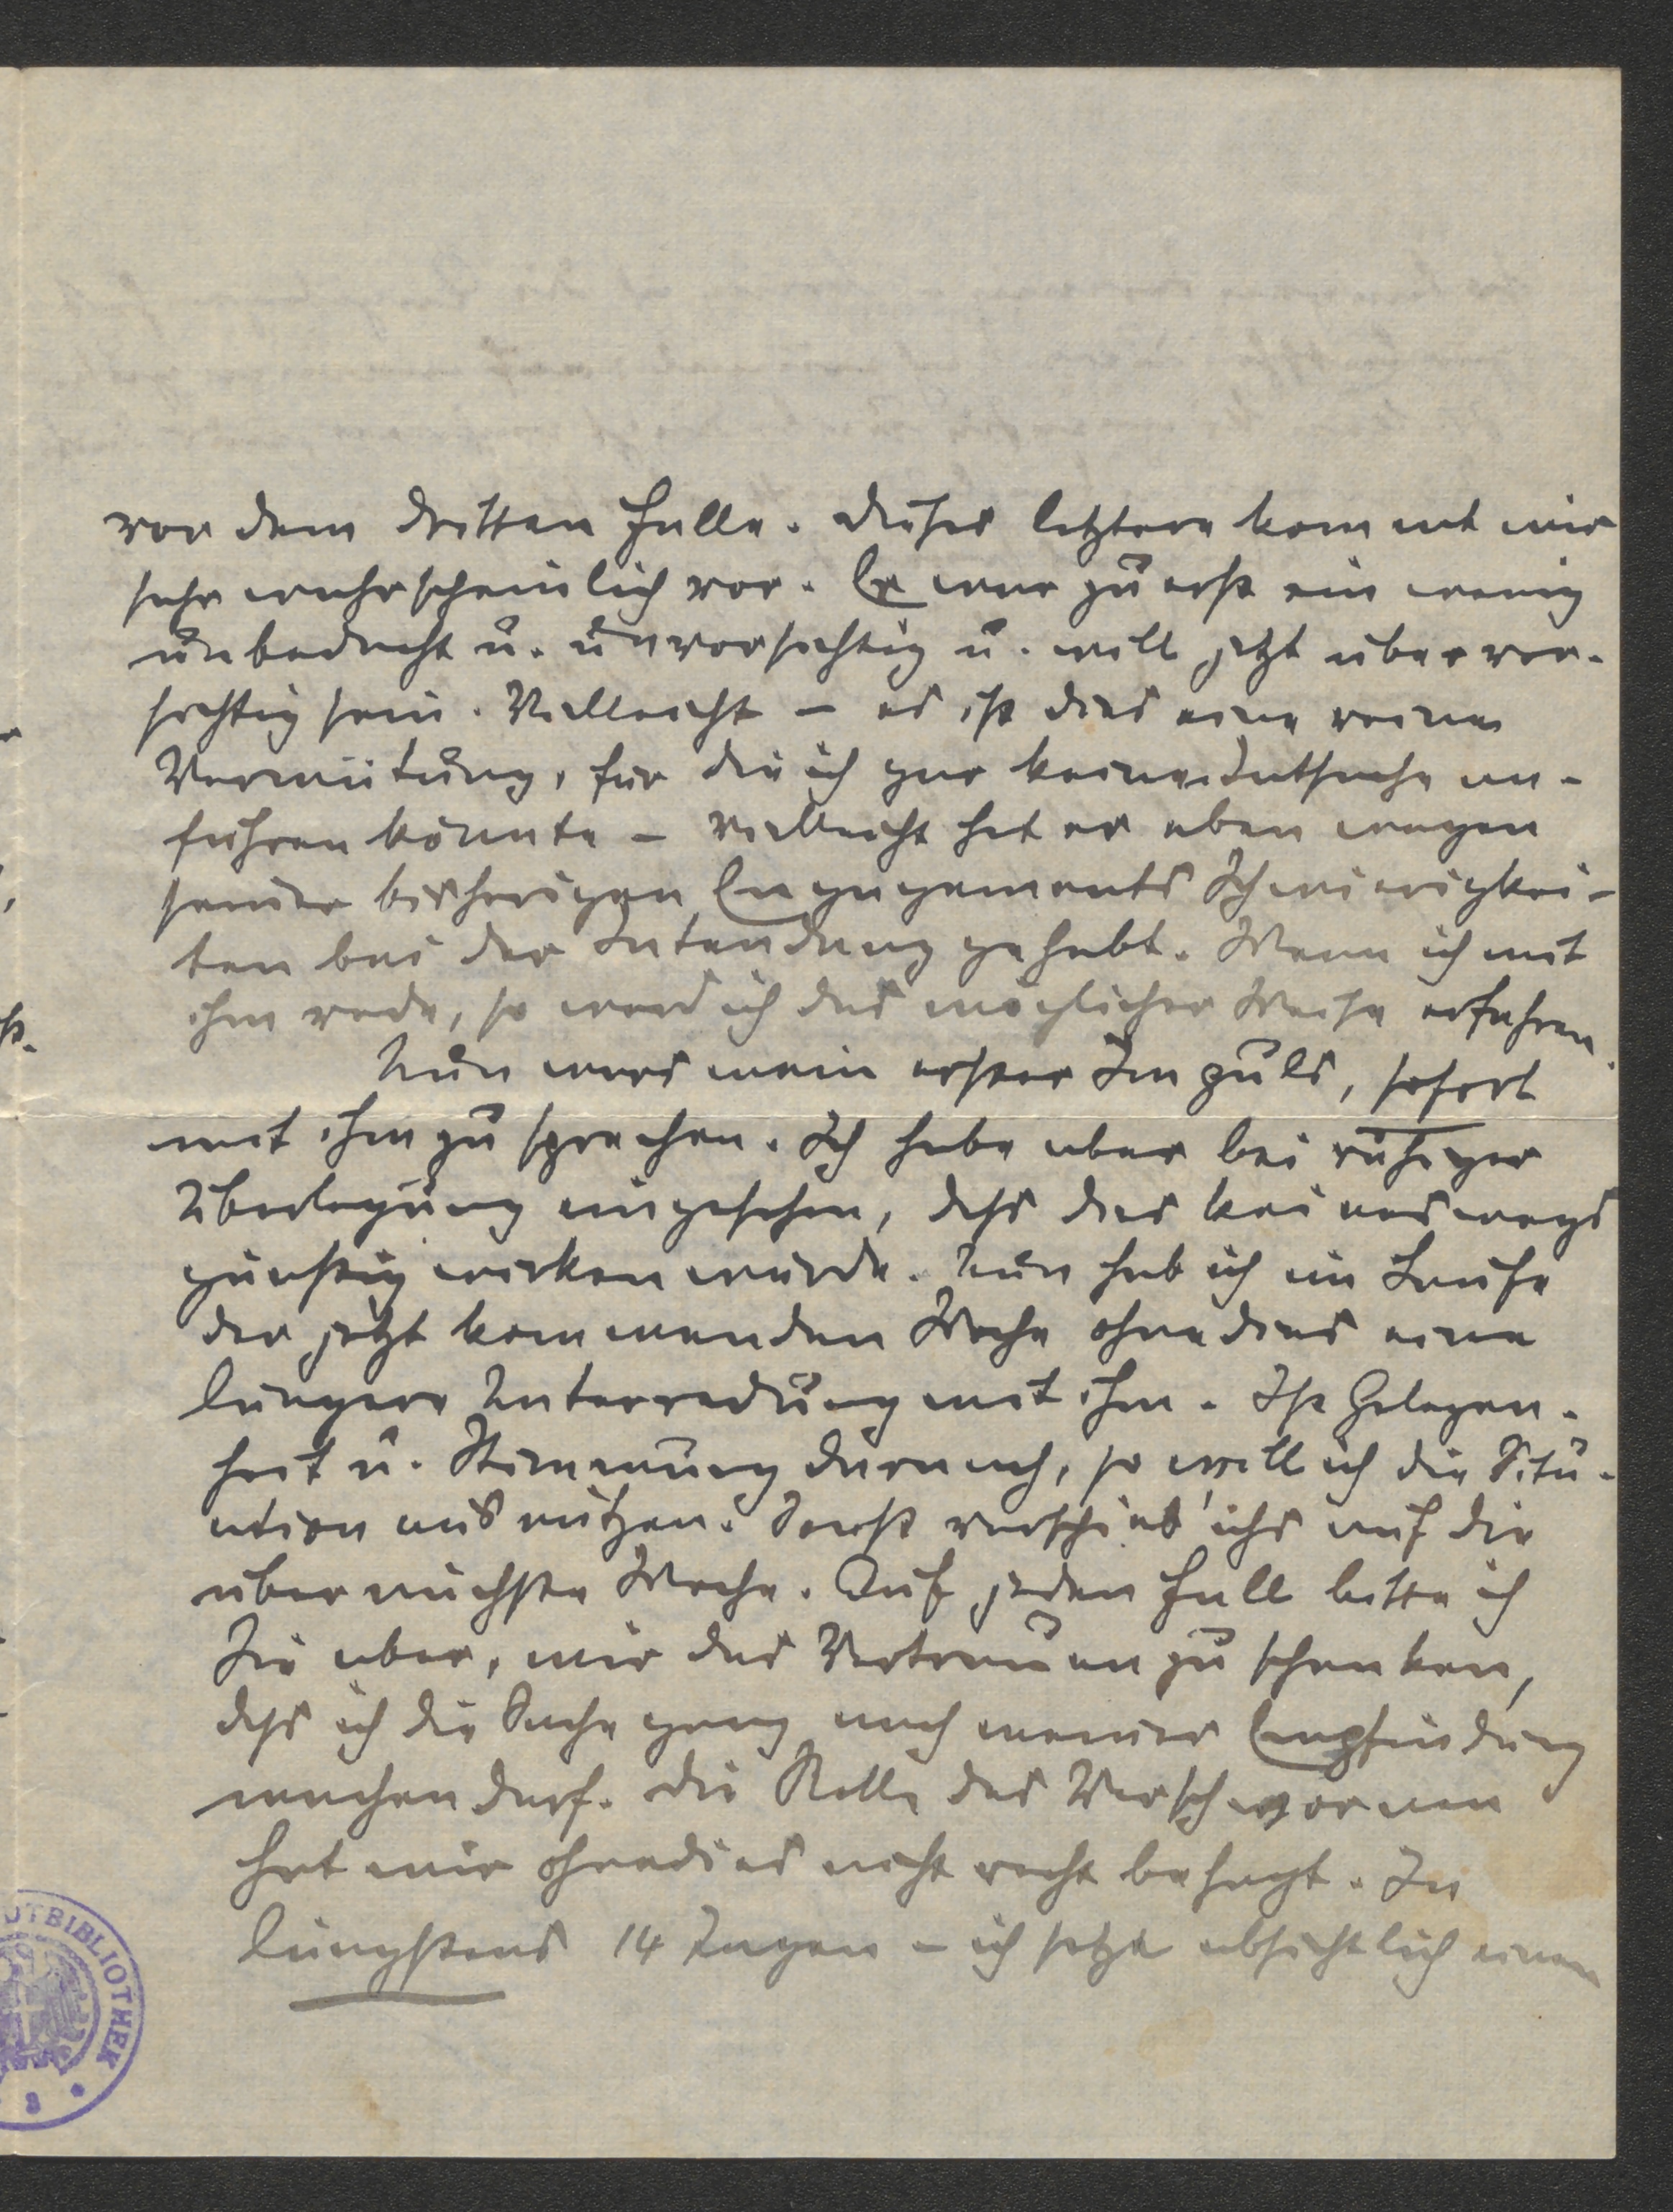 vor dem dritten Falle. Dieses letztere kommt mir
sehr wahrscheinlich vor. Er war zuerst ein wenig
unbedacht u. unvorsichtig u. will jetzt übervor-
sichtig sein. Vielleicht – es ist dies eine reine
Vermutung, für die ich gar keine Tatsache an-
führen könnte – vielleicht hat er eben wegen
seines bisherigen Engagements Schwierigkei-
ten bei der Intendanz gehabt. Wenn ich mit
ihm rede, so werd ich das möglicher Weise erfahren.
Nun war mein erster Impuls, sofort
mit ihm zu sprechen. Ich habe aber bei ruhiger
Überlegung eingesehen, dass dies keineswegs
günstig wirken würde. Nun hab ich im Laufe
der jetzt kommenden Woche ohnedies eine
längere Unterredung mit ihm. Ist Gelegen-
heit u. Stimmung darnach, so will ich die Situ-
ation ausnützen. Sonst verschieb' ichs auf die
übernächste Woche. Auf jeden Fall bitte ich
Sie aber, mir das Vertrauen zu schenken,
dass ich die Sache ganz nach meiner Empfindung
machen darf. Die Rolle des Verschwornen
hat mir ohnedies nicht recht behagt. In
längstens 14 Tagen – ich setze absichtlich einen
OTBIBLIOTHEK